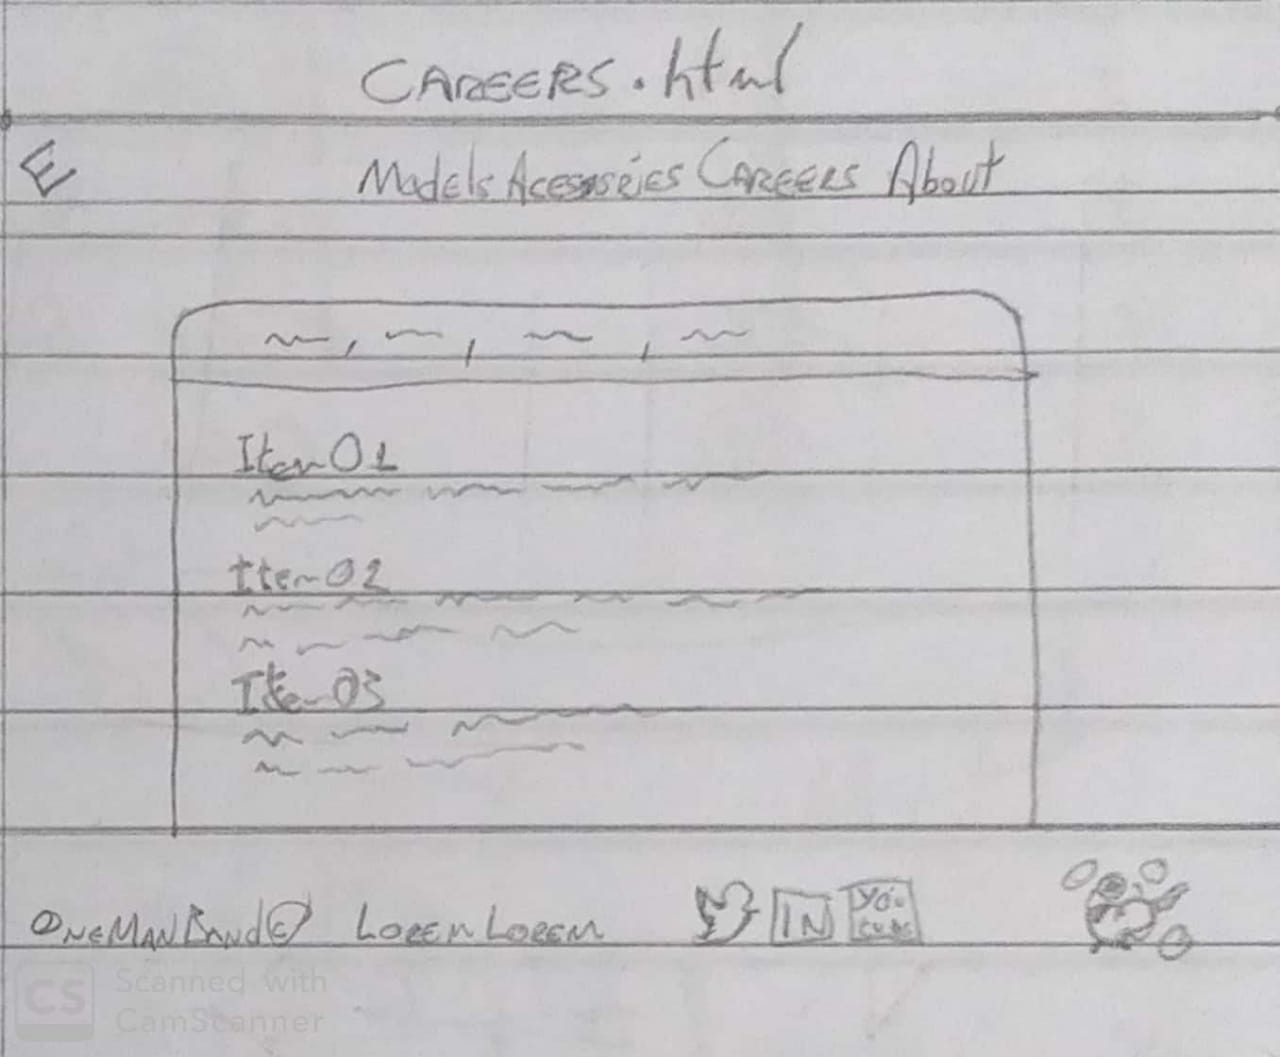 CAREERS.html
E
Models Acessories CAREERS About
Item 01
Item 02
Item 03
ONEMANBAND© LOREM LOREM IN YOU TUBE
CS Scanned with CamScanner